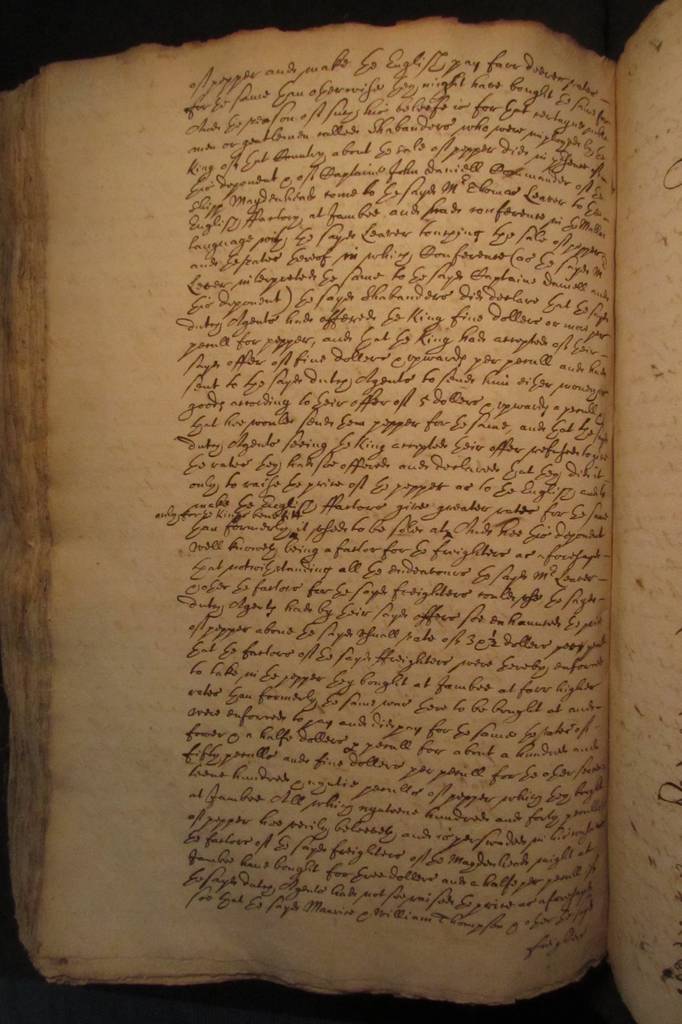 of pepper and make the English pay farr deerer rates
for the same than otherwise they might have bought the same for
And the reason of such his beleefe is for that certayne
men or gentlemen called Shabanders who were imployed by the
King of that Country about the sale of pepper did in presence of
this deponent & of Captaine John Daniell Commander of the
Shipp Maydenhead come to the sayd Mr Thomas Leaver to the
English Factory at Jambee and had conference in the Mallay
language with the sayd Leaver touching the sale of pepper
and the rates thereof in which Conference (as the sayd Mr
Lever interpreted the same to the sayd Captaine Daniell and
this deponent) the sayd Shabanders did declare that the sayd
dutch Agents had offered the King five dollers or more per
pecull for pepper, and that the King had accepted of their
sayd offer of five dollers & upwards per pecull and had
sent to the sayd dutch Agents to send him either money or
goods according to their offer of 5 dollers & upwards a pecull &
that hee would send them pepper for the same, and that the sayd
dutch Agents seeing the King accepted their offer refused to give
the rates they had soe offered and declared that they did it
only to raise the price of the pepper as to the English and to
make the English Factors give greater rates for the same
only for the Kings benefitt
than formerly it used to be sold at, And hee this deponent
well knoweth being a factor for the freighters as aforesayd
that notwithstanding all the endeavours the sayd Mr Leaver
& other the factors for the sayd freighters could use the sayd
dutch Agents had by their sayd offers soe enhaunced the price
of pepper above the sayd usuall rate of 3 & ½ dollers per pecull
that the factors of the sayd ffreighters were thereby enforced
to take in the pepper they bought at Jambee at farr higher
rates than formerly the same was there to be bought at and
were enforced to pay and did pay for the same the rates of
fower & a halfe dollers per pecull for about a hundred and
fifty peculls and five dollers per pecull for the other
teene hundred & nyntie peculls of pepper which they bought
at Jambee All which nyneteene hundred and forty peculls
of pepper hee verily beleeveth and is perswaded in his
the factors of the sayd freighters of the Maydenhead might at
Jambee have bought for three dollers and a halfe per pecull if
the sayd dutch Agents had not soe raised the price as aforesayd
soe that the sayd Maurice & William Thompson & other the sayd
freighters